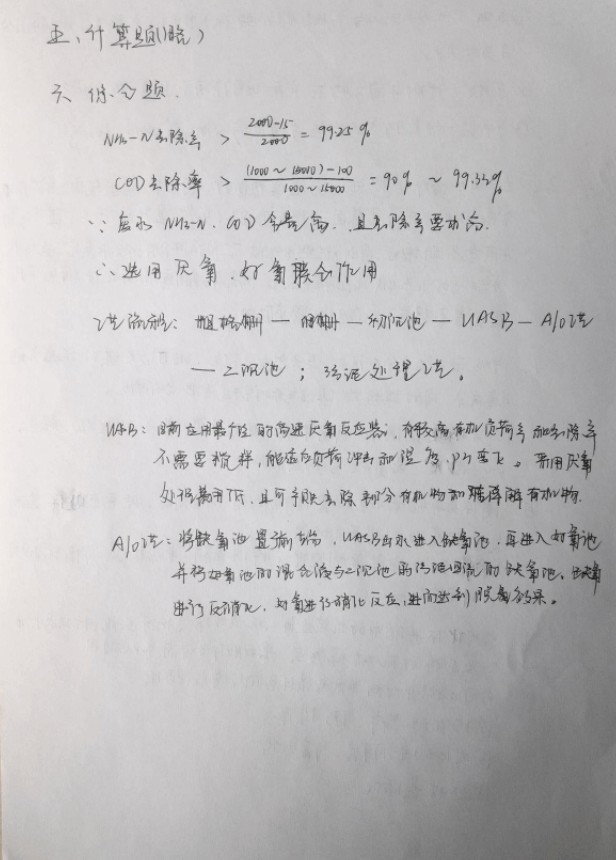 五、计算题(略)
六 综合题.
NH₃-N去除率 > (2000-15)/2000 = 99.25%
COD去除率 > ((1000~15000)-100)/(1000~15000) = 90% ~ 99.33%
∵ 废水 NH₃-N、COD含量高. 且去除率要求高.
∴ 选用厌氧、好氧联合作用
工艺流程: 粗格栅 — 细格栅 — 初沉池 — UASB — A/O工艺
— 二沉池 ; 污泥处理工艺。
UASB: 目前应用最广泛的高速厌氧反应器, 有较高有机负荷率和去除率
不需要搅拌, 能适应负荷冲击和温度, pH变化。采用厌氧
处理费用低, 且可予以去除部分有机物和难降解有机物.
A/O工艺: 将缺氧池置前端, UASB出水进入缺氧池, 再进入好氧池
并将好氧池的混合液与二沉池的污泥回流的缺氧池。缺氧
进行反硝化, 好氧进行硝化反应, 进而达到脱氮效果。